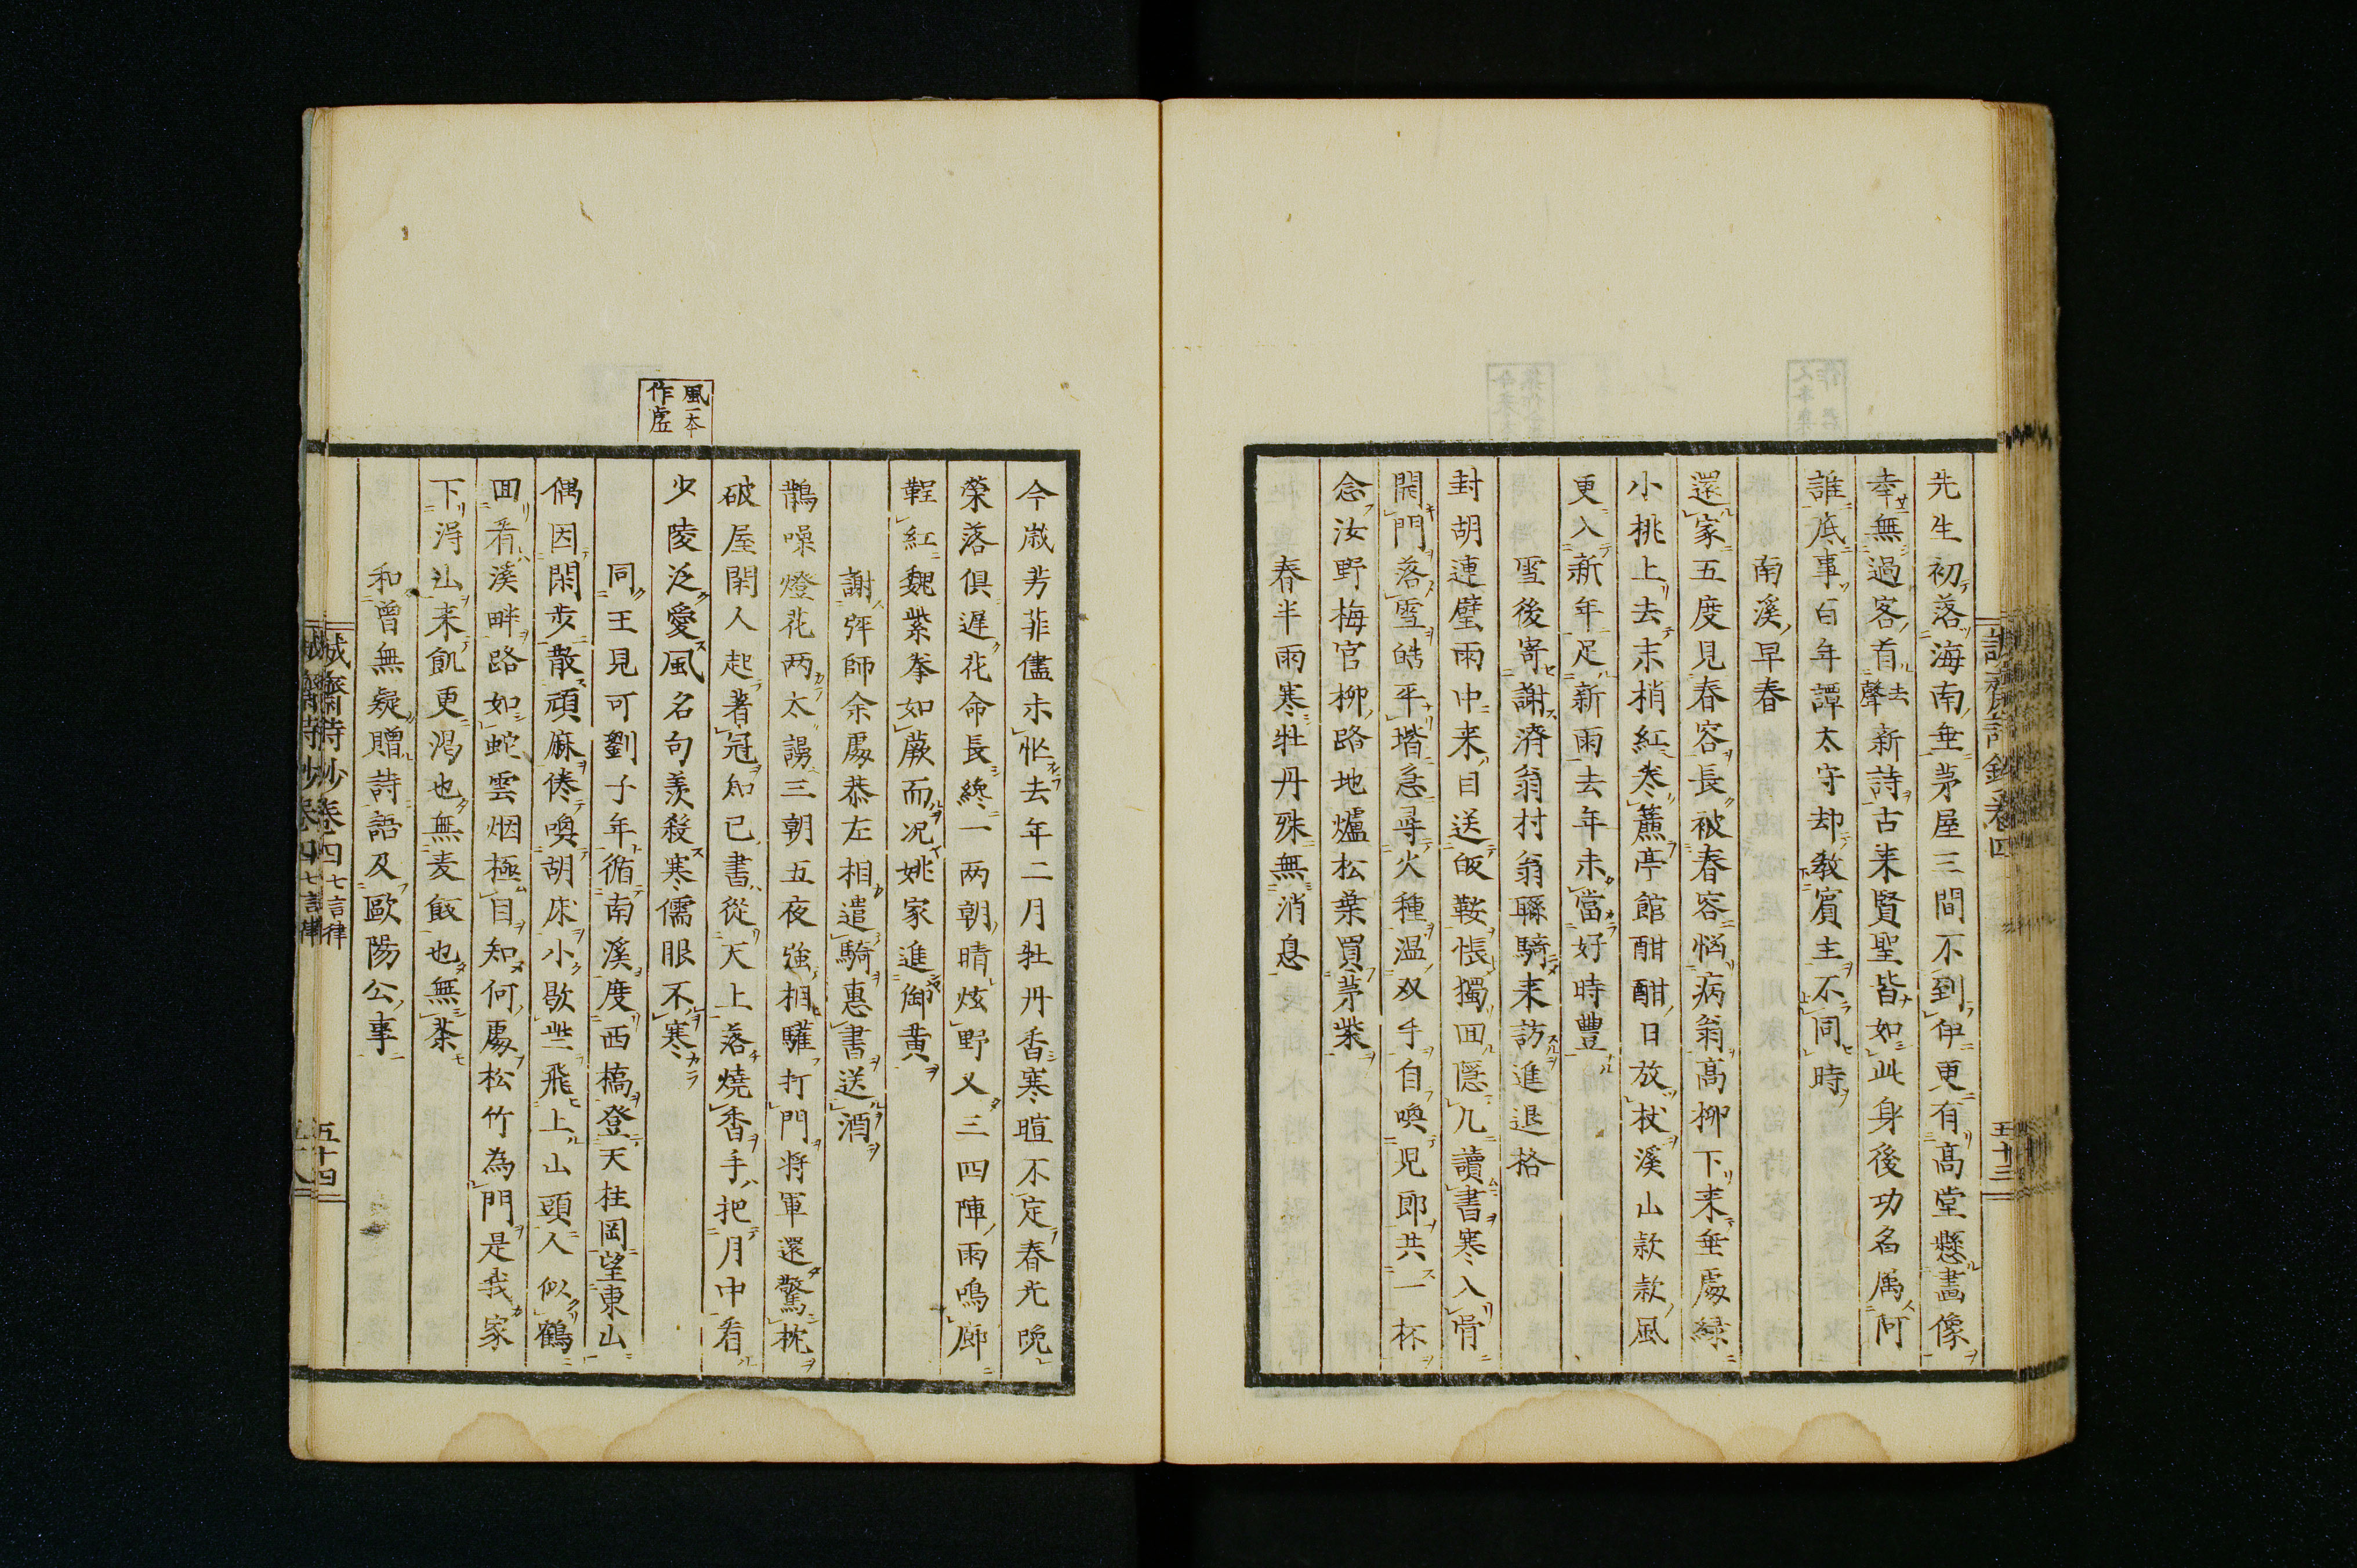 先生初落海南垂茅屋三間不到伊更有高堂懸畫像
幸無過客看去聲新詩古来賢聖皆如此身後功名属阿
誰底事百年譚太守却教賓主不同時
南溪早春
還家五度見春容長被春容惱病翁高柳下来垂處緑
小桃上去末梢紅卷簾亭館酣酣日放杖溪山款款風
更入新年足新雨去年未當好時豊
雪後寄謝濟翁材翁聯騎来訪進退格
封胡連璧雨中来目送皈鞍悵獨回隱几讀書寒入骨
閞門落雪皓平堦急尋火種温双手自喚児郎共一杯
念汝野梅官柳路地爐松葉買茅柴
春半雨寒牡丹殊無消息
今嵗芳菲儘未忙去年二月牡丹香寒暄不定春光晩
榮落俱遲花命長纔一两朝晴炫野又三四陣雨鳴廊
鞓紅魏紫拳如蕨而况姚家進御黄
謝丞師余處恭左相遣騎惠書送酒
鵲噪燈花两太謾三朝五夜強相驩打門将軍還驚枕
破屋閑人起著冠知已書從天上落燒香手把月中看
少陵泛愛風名句羨殺寒儒眼不寒
風一本
作虚
同王見可劉子年循南溪度西橋登天柱岡望東山
偶因閑步散頑麻倦喚胡床小歇些飛上山頭人似鶴
回看溪畔路如蛇雲烟極目知何處松竹為門是我家
下得山来飢更渇也無麦飯也無茶
和曾無疑贈詩語及歐陽公事
誠齋詩鈔卷四
五十三
誠齋詩鈔卷四 七言律
五十四